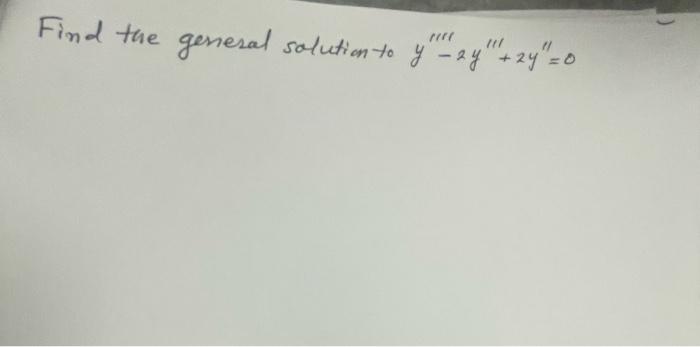 Find the general solution to y'''' - 2y''' + 2y'' = 0